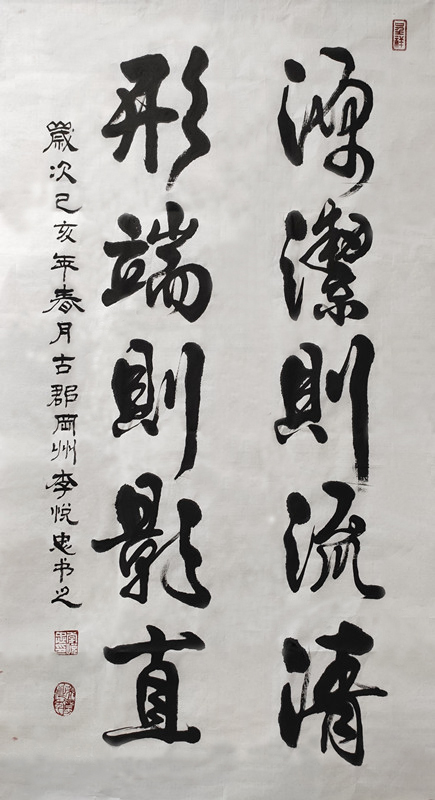 源潔則流清
形端則影直
歲次己亥年春月古郡岡州李悅忠书之